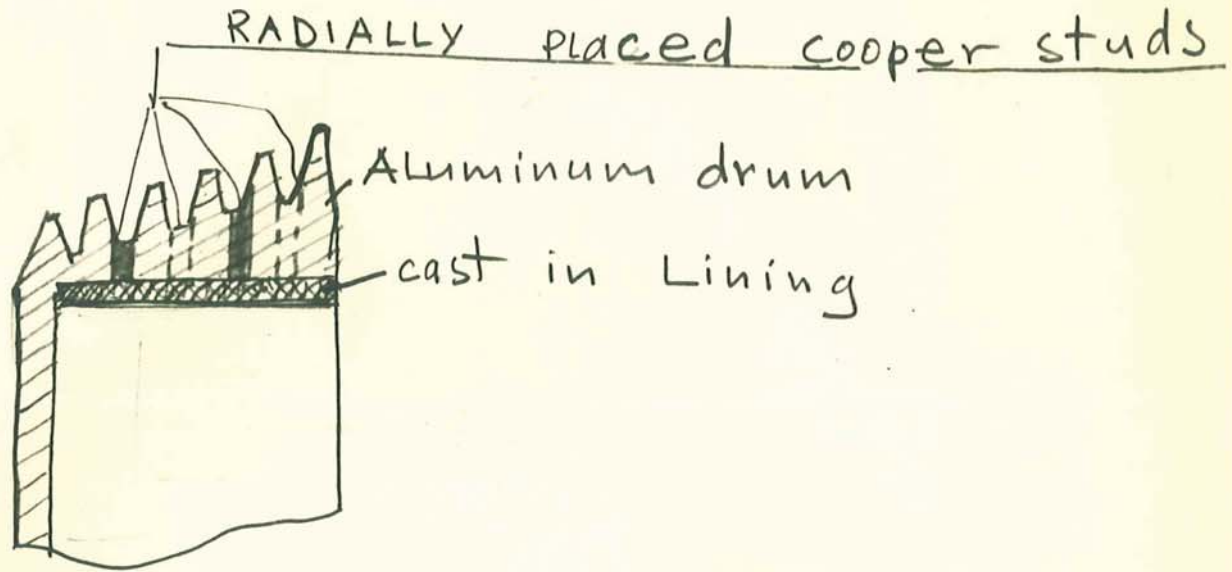 RADIALLY placed cooper studs
Aluminum drum
cast in Lining